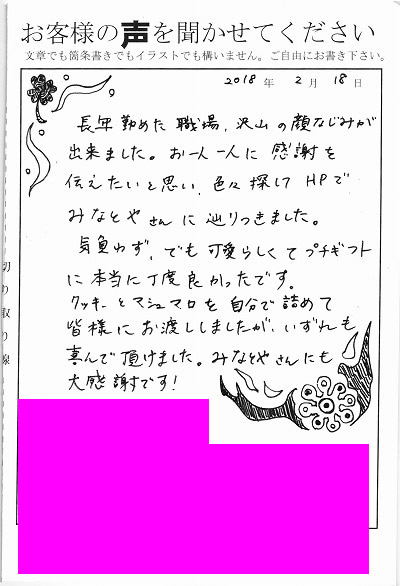 お客様の声を聞かせてください
文章でも箇条書きでもイラストでも構いません。ご自由にお書き下さい。
2018年 2月 18日
長年勤めた職場、沢山の顔なじみが
出来ました。お一人一人に感謝を
伝えたいと思い、色々探してHPで
みなとやさんに辿りつきました。
気負わず、でも可愛らしくてプチギフト
に本当に丁度良かったです。
クッキーとマシュマロを自分で詰めて
皆様にお渡ししましたが、いずれも
喜んで頂けました。みなとやさんにも
大感謝です!
切り取り線